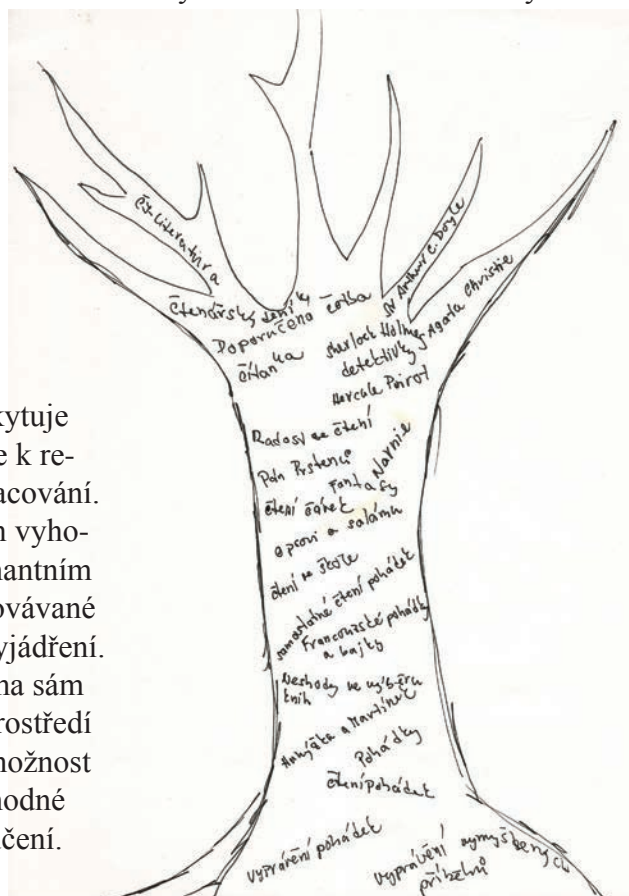 kytuje
e k re-
acování.
n vyho-
nantním
ovávané
yjádření.
na sám
rostředí
nožnost
nodné
čení.
čj-literatura
Sir Arthur C. Doyle
Agata Christie
čtenářský deník
Doporučená četba
čítanka
Sherlock Holmes
detektivky
Hercule Poirot
Radost ze čtení
Pán Prstenů
Narnie
Fantasy
čtení
o provi a salámu
čtení ve škole
samostatné čtení pohádek
Francouzské pohádky
a bajky
Neshody ve výběru
knih
a Martínek
Pohádky
čtení pohádek
vyprávění pohádek
vyprávění vymyšlených
příběhů